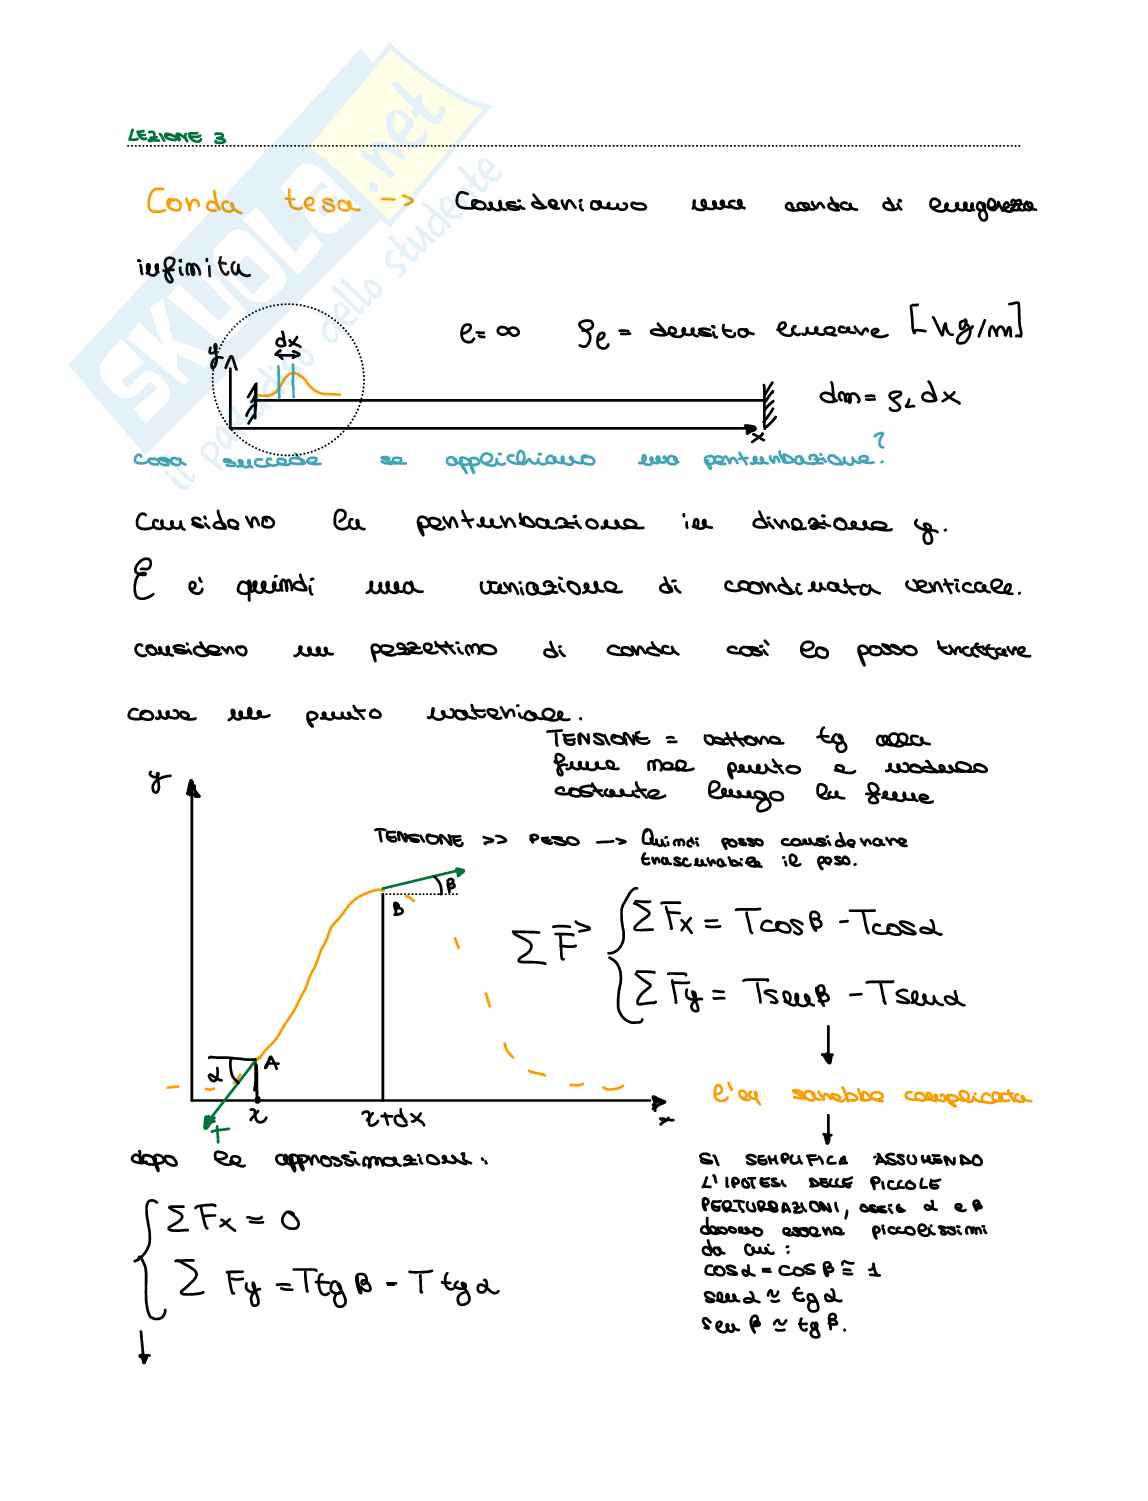 LEZIONE 3
Corda tesa -> Consideriamo una corda di lunghezza
infinita
l = ∞ ρℓ = densità lineare [kg/m]
dx
y
dm = ρL dx
x
cosa succede se applichiamo una perturbazione?
Considero la perturbazione in direzione y.
È e' quindi una variazione di coordinata verticale.
considero un pezzettino di corda così lo posso trattare
come un punto materiale.
TENSIONE = vettore tg alla
fune nel punto e modulo
costante lungo la fune
y
TENSIONE >> PESO —> Quindi posso considerare
trascurabile il peso.
β
B
ΣF { ΣFx = Tcosβ - Tcosα
ΣFy = Tsenβ - Tsenα
A
α
T
x
x+dx
x
l'eq sarebbe complicata
dopo le approssimazioni:
SI SEMPLIFICA ASSUMENDO
L'IPOTESI DELLE PICCOLE
PERTURBAZIONI, ossia α e β
devono essere piccolissimi
da cui:
cosα = cosβ ≅ 1
senα ≃ tgα
senβ ≃ tgβ.
{ ΣFx = 0
Σ Fy = Ttgβ - T tgα
SKUOLA.net
il paradiso dello studente